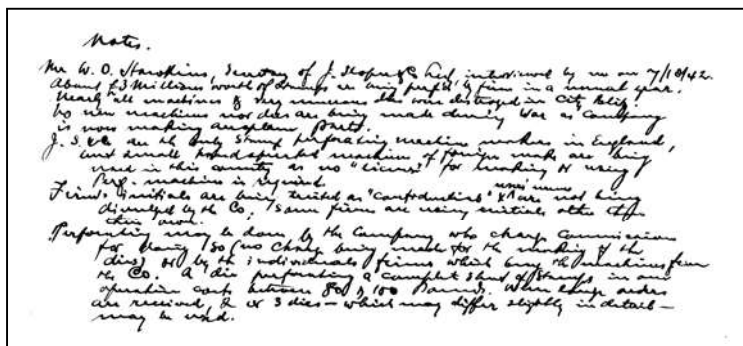 Notes.
Mr W. O. Hawkins, Secretary of J. Sloper & Co Ltd, interviewed by me on 7/10/42.
About £3 Millions worth of Stamps are being perf'd by firm in a normal year.
Nearly all machines & very numerous dies were destroyed in City Blitz.
No new machines nor dies are being made during War as Company
is now making aeroplane parts.
J. S. & Co are the only Stamp perforating machine makers in England,
and small hand operated machines of foreign make are being
used in this country as no "License" for making or using
Perf. machines is required.
Firms initials are being treated as "Confidential" & are not being
divulged by the Co; some firms are using initials other than
their own.
Perforating may be done by the Company who charge Commission
for doing so (no charge being made for the making of the
dies) or by the individual firms which buy the machines from
the Co. A die perforating a complete sheet of stamps in one
operation costs between 80 & 100 Pounds. When large orders
are received, 2 or 3 dies – which may differ slightly in detail –
may be used.